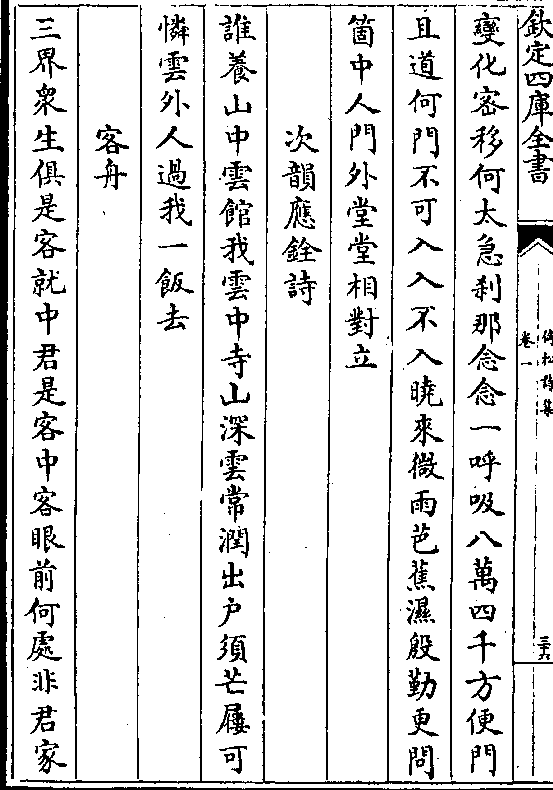 欽定四庫全書
倚松詩集
卷一
三六
變化密移何太急刹那念念一呼吸八萬四千方便門
且道何門不可入入不入曉來微雨芭蕉濕殷勤更問
箇中人門外堂堂相對立
次韻應銓詩
誰養山中雲館我雲中寺山深雲常潤出户須芒屨可
憐雲外人過我一飯去
客舟
三界衆生俱是客就中君是客中客眼前何處非君家